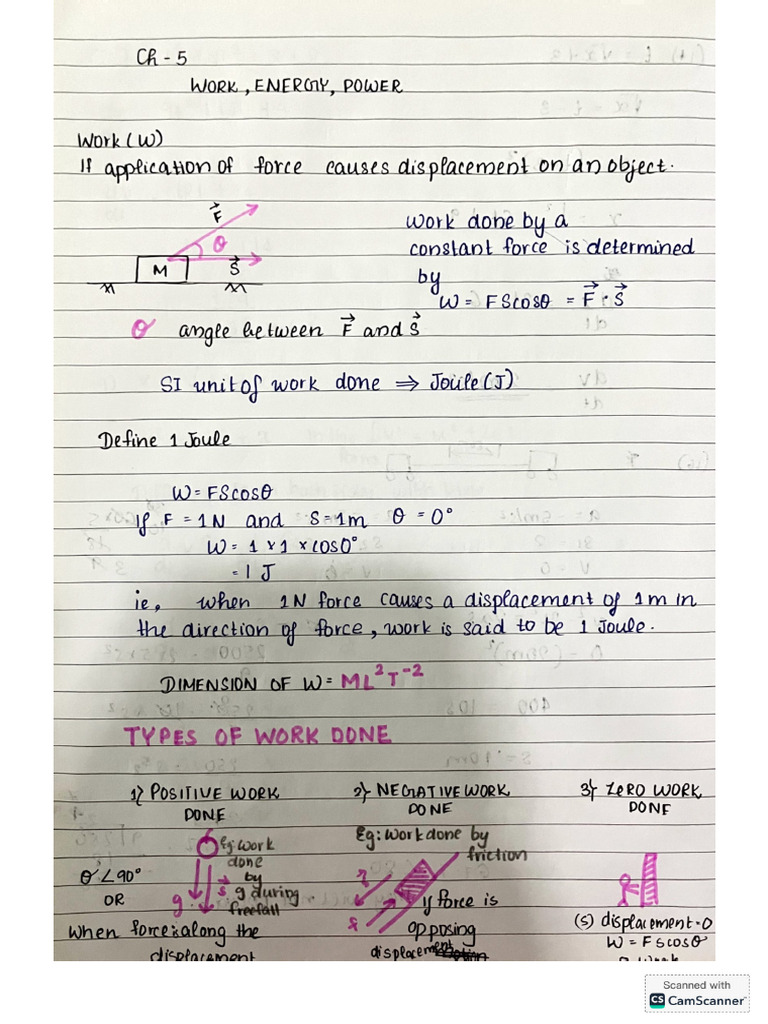 Ch - 5
WORK, ENERGY, POWER
Work (W)
If application of force causes displacement on an object.
F⃗
θ
M
S⃗
Work done by a
constant force is determined
by
W = FScosθ = F⃗ · S⃗
θ angle between F⃗ and S⃗
SI unit of work done ⇒ Joule (J)
Define 1 Joule
W = FScosθ
If F = 1N and S = 1m θ = 0°
W = 1 × 1 × cos0°
= 1 J
ie, when 1N force causes a displacement of 1m in
the direction of force, work is said to be 1 Joule.
DIMENSION OF W = ML²T⁻²
TYPES OF WORK DONE
1) POSITIVE WORK
DONE
Eg: work
done
by
g during
freefall
g
s⃗
θ < 90°
OR
When force is along the
displacement
2) NEGATIVE WORK
DONE
Eg: work done by
friction
If force is
opposing
displacement
3) ZERO WORK
DONE
(S) displacement = 0
W = FScosθ
Scanned with
CS CamScanner